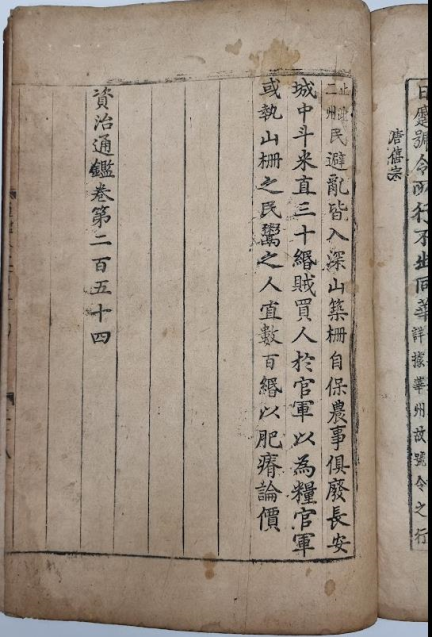 日蹙號令所行不出同華
詳據華州故號令之行
唐僖宗
止
二州
民避亂皆入深山築柵自保農事俱廢長安
城中斗米直三十緡賊買人於官軍以為糧官軍
或執山柵之民鬻之人直數百緡以肥瘠論價
資治通鑑卷第二百五十四